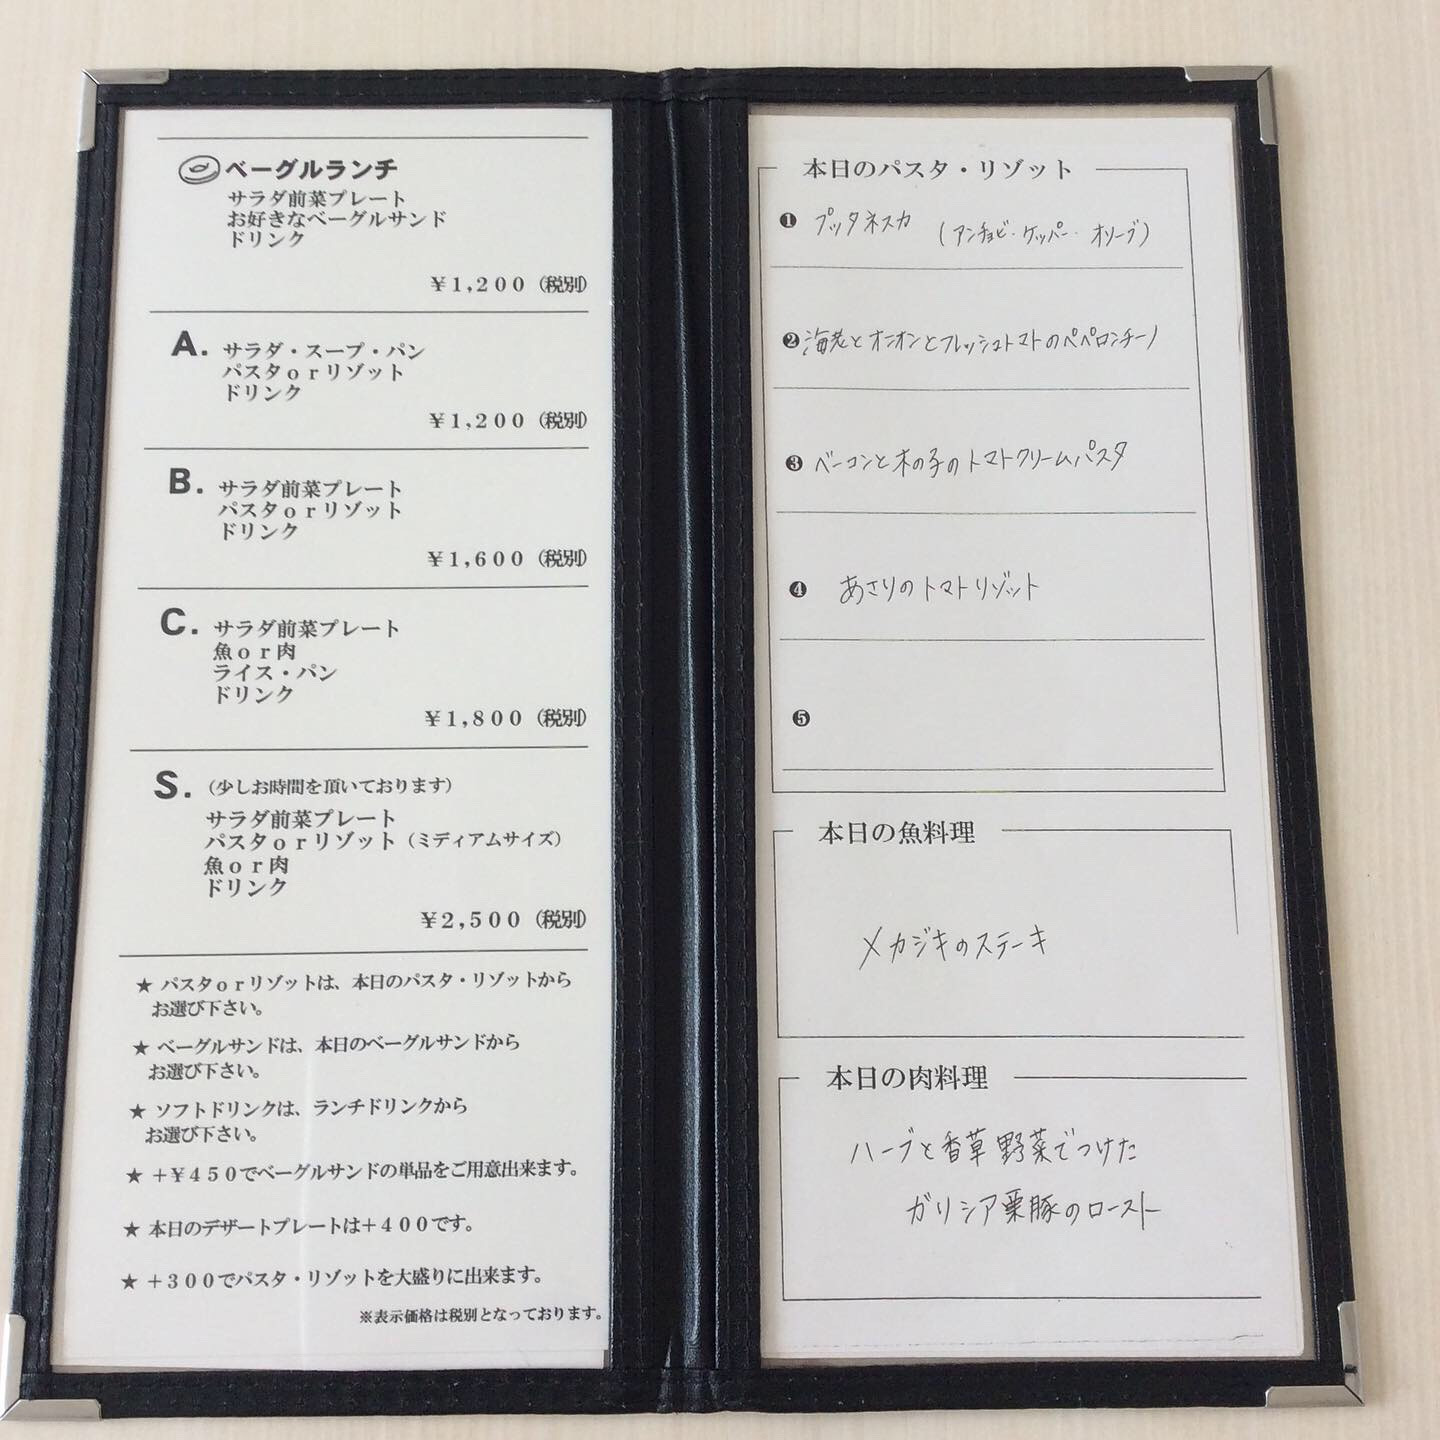 ベーグルランチ
サラダ前菜プレート
お好きなベーグルサンド
ドリンク
￥１,２００（税別）
A. サラダ・スープ・パン
パスタｏｒリゾット
ドリンク
￥１,２００（税別）
B. サラダ前菜プレート
パスタｏｒリゾット
ドリンク
￥１,６００（税別）
C. サラダ前菜プレート
魚ｏｒ肉
ライス・パン
ドリンク
￥１,８００（税別）
S.（少しお時間を頂いております）
サラダ前菜プレート
パスタｏｒリゾット（ミディアムサイズ）
魚ｏｒ肉
ドリンク
￥２,５００（税別）
★ パスタｏｒリゾットは、本日のパスタ・リゾットから
お選び下さい。
★ ベーグルサンドは、本日のベーグルサンドから
お選び下さい。
★ ソフトドリンクは、ランチドリンクから
お選び下さい。
★ ＋￥４５０でベーグルサンドの単品をご用意出来ます。
★ 本日のデザートプレートは＋４００です。
★ ＋３００でパスタ・リゾットを大盛りに出来ます。
※表示価格は税別となっております。
本日のパスタ・リゾット
❶ プッタネスカ （アンチョビ・ケッパー・オリーブ）
❷ 海老とオニオンとフレッシュトマトのペペロンチーノ
❸ ベーコンと木の子のトマトクリームパスタ
❹ あさりのトマトリゾット
❺
本日の魚料理
メカジキのステーキ
本日の肉料理
ハーブと香草野菜でつけた
ガリシア栗豚のロースト